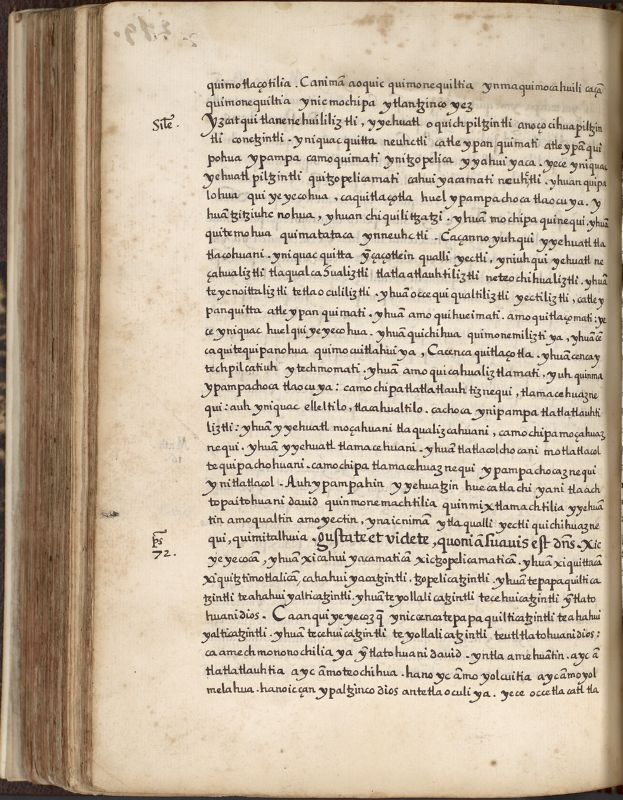 quimotlaçotilia. Canimã aoquic quimonequiltia ynmaquimocahuili caçã
quimonequiltia ynic mochipa ytlantzinco yez
Simĩ.
Yzcatqui tlanenehuililiztli, yyehuatl oquichpiltzintli anoço cihuapiltzin
tli conetzintli. yniquac quitta neuhctli catle ypan quimati atle ypã qui
pohua ypampa camo quimati ynitzopelica yyahuiyaca. yece yniquac
yehuatl piltzintli quitzopelicamati cahuiyacamati neuhctli. yhuan quipa
lohua quiyeyecohua, caquitlaçotla huel ypampa choca tlaocuya. y
huã tzitziuhcnohua, yhuan chiquilitzatzi. yhuã mochipa quinequi. yhuã
quitemohua quimatataca ynneuhctli. Caçanno yuhqui yyehuatl tla
tlaçohuani. yniquac quitta yçaçotlein qualli yectli, yniuhqui yehuatl ne
çahualiztli tlaqualcahualiztli tlatlatlauhtiliztli neteochihualiztli. yhuã
teycnoittaliztli tetlaoculiliztli. yhuã occequi qualtiliztli yectiliztli, catle y
panquitta atle ypan quimati. yhuã amo quihueimati. amo quitlaçomati: ye
ce yniquac huel quiyeyecohua. yhuã quichihua quimonemilizti ya, yhuã cẽ
ca quitequipanohua quimocuitlahuiya, Cacenca quitlaçotla. yhuã cenca y
techpilcatiuh ytechmomati. yhuã amo quicahualiztlamati, yuhquinma
ypampa choca tlaocuya: camochipa tlatlatlauhtiznequi, tlamacehuazne
qui: auh yniquac elleltilo, tlacahualtilo. cachoca ynipampa tlatlatlauhti
liztli: yhuã yyehuatl moçahuani tlaqualizcahuani, camochipa moçahuaz
nequi. yhuã yyehuatl tlamacehuani. yhuã tlatlacolchocani motlatlacol
tequipachohuani. camochipa tlamacehuaznequi ypampa chocaznequi
ynitlatlacol. Auh ypampahin yyehuatzin huecatlachiyani tlaach
topaitohuani david quinmonemachtilia quinmixtlamachtilia yyehuã
tin amo qualtin amo yectin, ynaicnimã ytla qualli yectli quichihuazne
qui, quimitalhuia. gustate et videte, quoniã suavis est dñs. Xic
ps
72.
yeyecocã, yhuã xicahuiyacamaticã xictzopelicamaticã. yhuã xiquittacã
xiquitztimotlalicã, cahahuiyacatzintli. tzopelicatzintli. yhuã tepapaquiltica
tzintli teahahuiyalticatzintli. yhuã teyollalicatzintli tecehuicatzintli ỹ tlato
huani dios. Caanquiyeyecozq̃ yniccenca tepapaquilticatzintli teahahui
yalticatzintli. yhuã tecehuicatzintli teyollalicatzintli teutl tlatohuani dios:
ca amechmononochilia ya ỹ tlatohuani david. yntla amehuãtin. aycã
tlatlatlauhtia aycãmoteochihua. hano ycãmoyolcuitia aycãmoyol
melahua. hanoicçan ypaltzinco dios antetlaoculiya. yece occe tlacatl tla